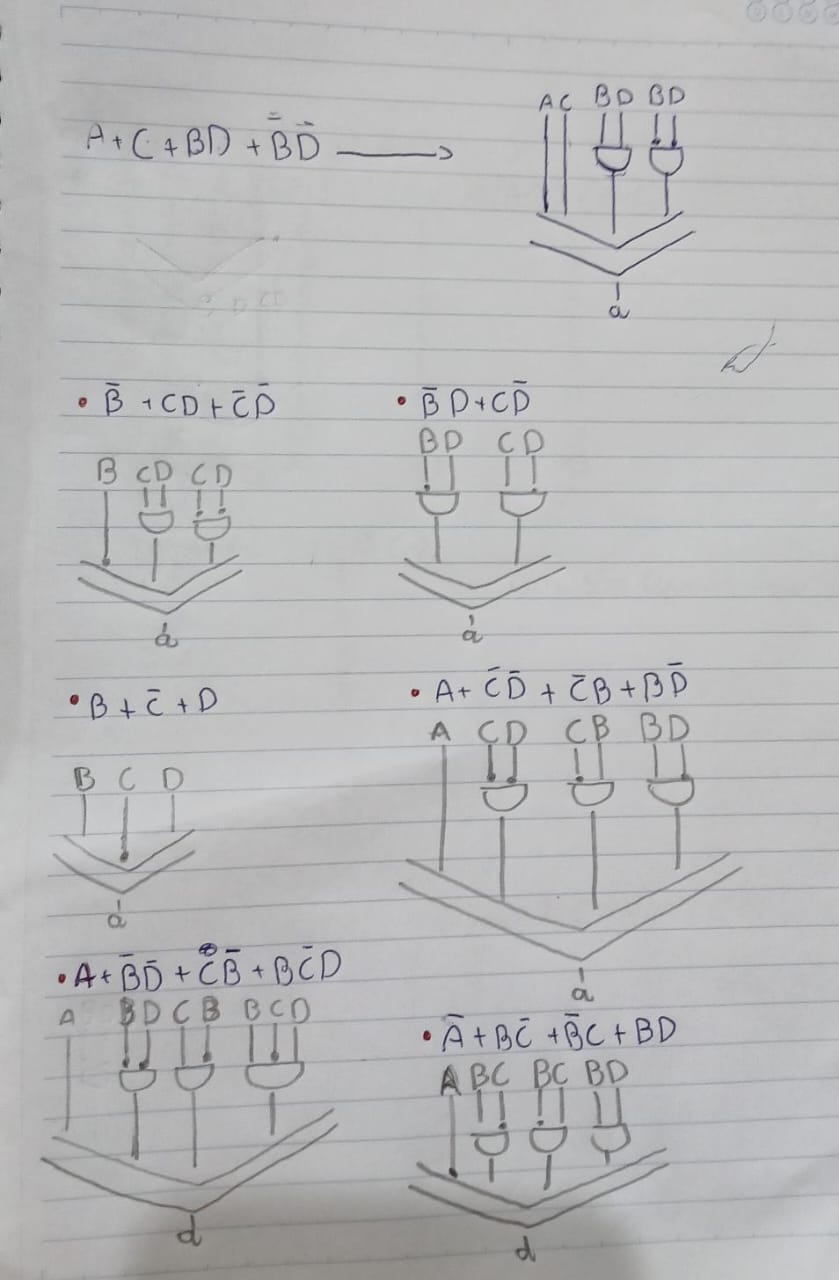 A C BD BD
A + C + BD + B̄D̄ ⟶
a
• B̄ + CD + C̄D̄
• B̄D + CD̄
B CD CD
BD CD
a
a
• B + C̄ + D
• A + C̄D̄ + C̄B + BD̄
B C D
A CD CB BD
a
a
• A + B̄D̄ + CB̄ + BC̄D
A BD CB BCD
• Ā + BC̄ + B̄C + BD
A BC BC BD
d
d